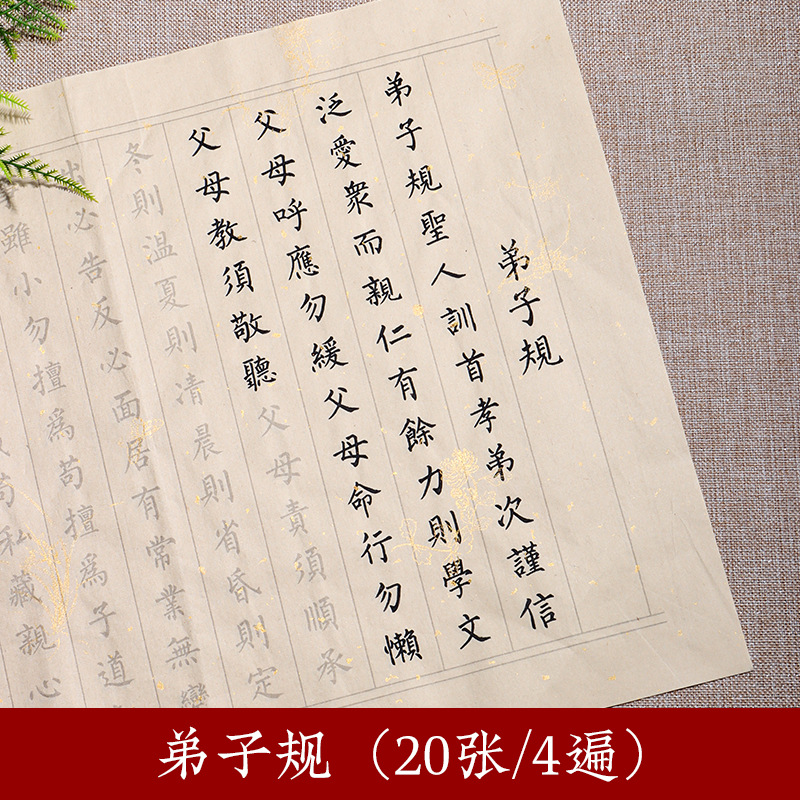 弟子規
弟子規聖人訓首孝弟次謹信
泛愛衆而親仁有餘力則學文
父母呼應勿緩父母命行勿懶
父母教須敬聽父母責須順承
冬則温夏則凊晨則省昏則定
出必告反必面居有常業無變
雖小勿擅爲苟擅爲子道
苟私藏親心
弟子规（20张/4遍）